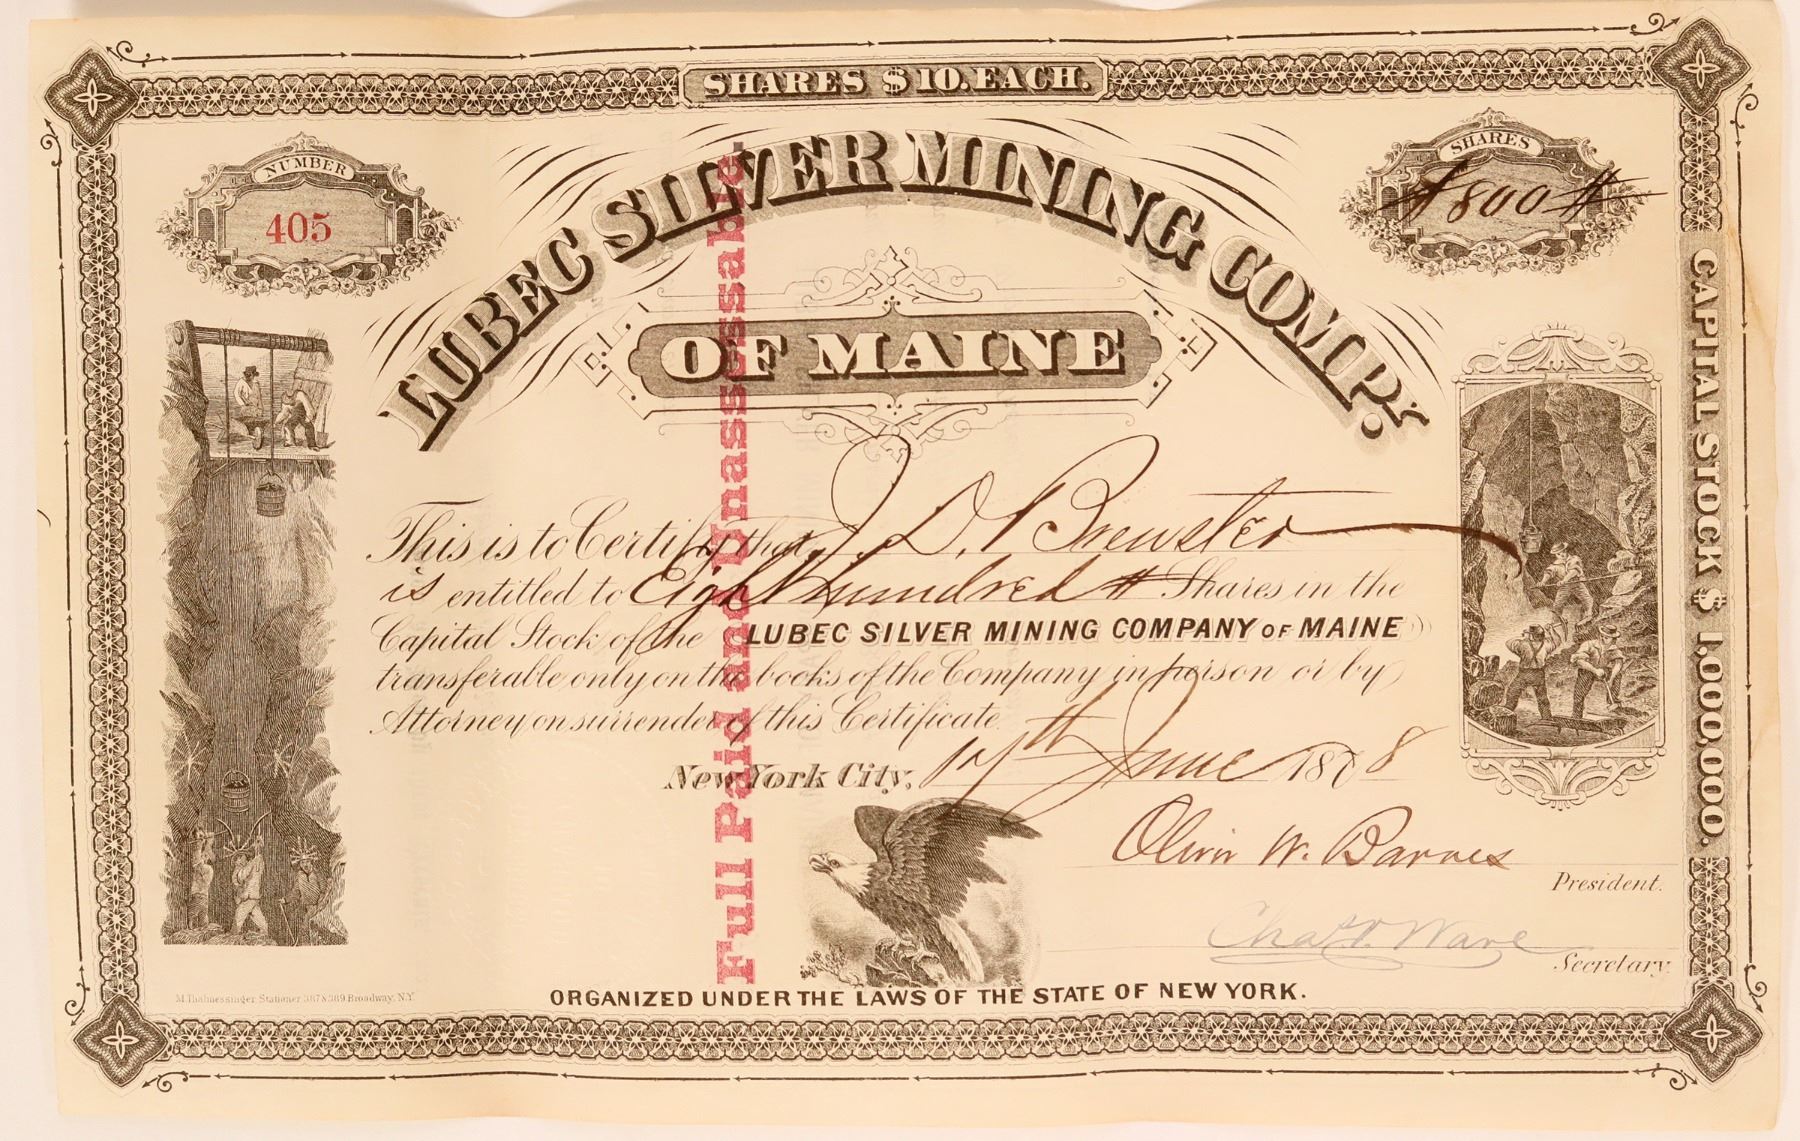 SHARES $10. EACH.
NUMBER
405
SHARES
# 800 #
LUBEC SILVER MINING COMPY.
OF MAINE
CAPITAL STOCK $ 1,000,000.
Full Paid and Unassessable.
This is to Certify that J. D. Brewster
is entitled to Eight Hundred # Shares in the
Capital Stock of the LUBEC SILVER MINING COMPANY OF MAINE
transferable only on the books of the Company in person or by
Attorney on surrender of this Certificate.
New York City, 17th June 1878
Oliver W. Barnes
President.
Ware
Secretary.
M. Thalmessinger Stationer 387 & 389 Broadway, N.Y.
ORGANIZED UNDER THE LAWS OF THE STATE OF NEW YORK.